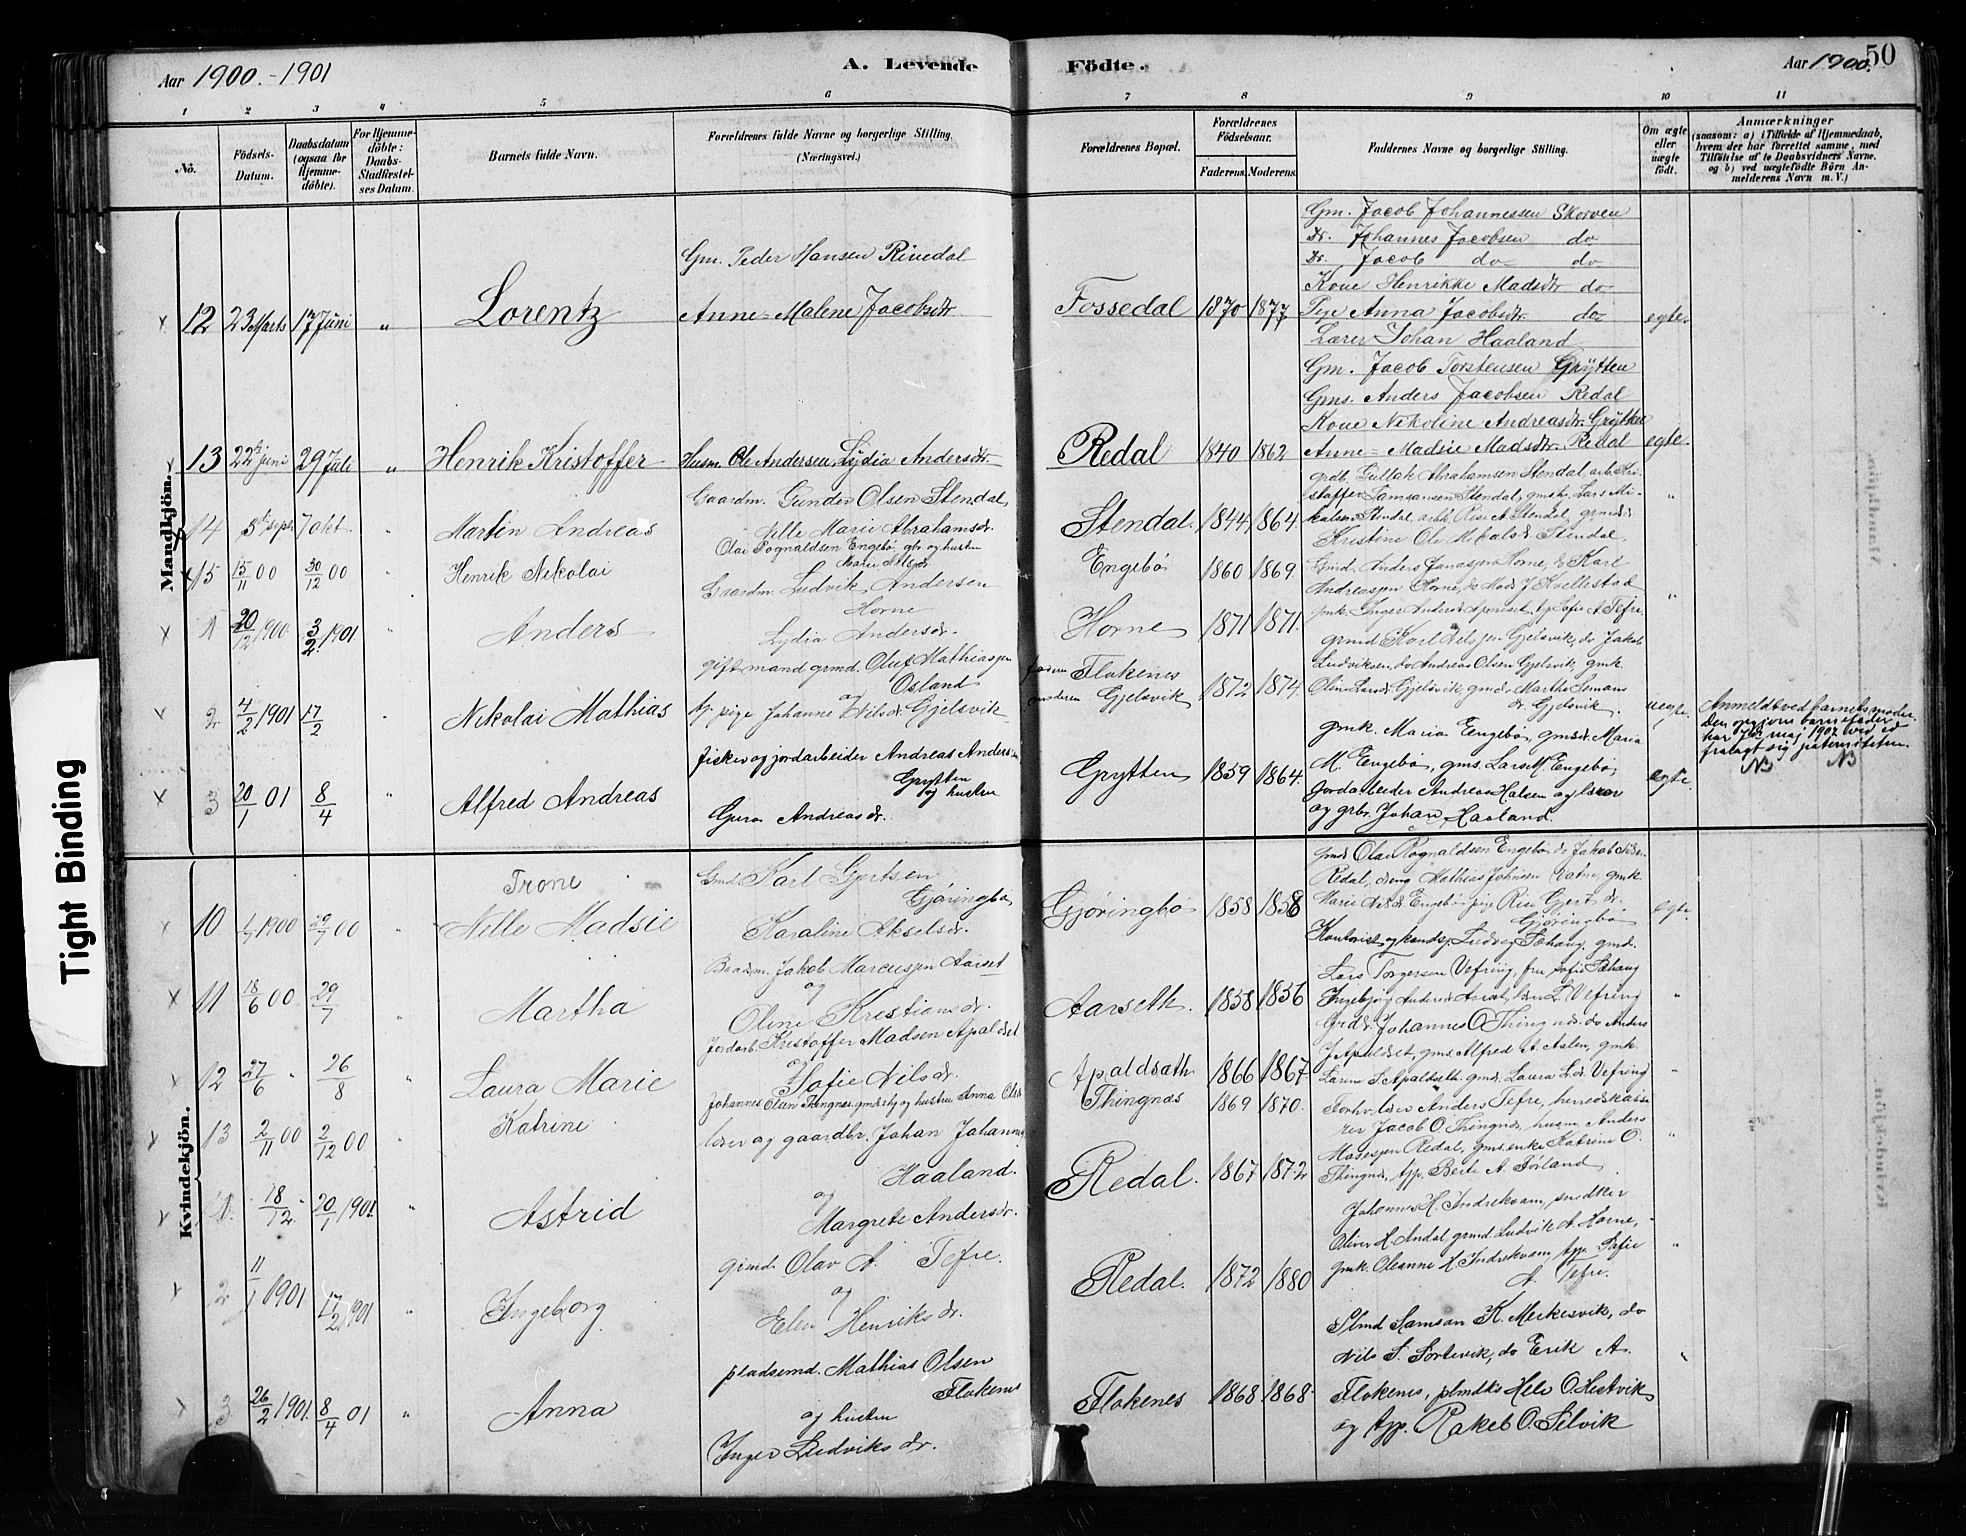 Aar 1900.-1901
A. Levende Födte.
Aar 1900.
50
1 2 3 4 5 6 7 8 9 10 11
No.
Födsels-
Datum.
Daabsdatum
(ogsaa for
Hjemme-
döbte).
For Hjemme-
döbte:
Daabs-
Stadfæstel-
ses Datum.
Barnets fulde Navn.
Forældrenes fulde Navne og borgerlige Stilling.
(Næringsvei.)
Forældrenes Bopæl.
Forældrenes
Födselsaar.
Faderens. Moderens.
Faddernes Navne og borgerlige Stilling.
Om ægte
eller
uægte
födt.
Anmærkninger
(saasom: a) i Tilfælde af Hjemmedaab,
hvem der har forrettet samme, med
Tilföielse af to Daabsvidners Navne.
og b) ved uægtefödte Börn An-
melderens Navn m. V.)
Mandkjön.
12 23 Marts 17 Juni " Lorentz
Gm. Peder Hansen Rivedal
Anne-Malene Jacobsdtr
Fossedal 1870 1877
Gm. Jacob Johannessen Skorven
Dr. Johannes Jacobsen do
Dr. Jacob do do
Kone Henrikke Madsdtr do
Pige Anna Jacobsdtr. do
Lærer Johan Haaland
egte
13 22de juni 29 Juli " Henrik Kristoffer
Husm. Ole Andersen, Lydia Andersdtr
Redal 1840 1862
Gm. Jacob Torstensen Grytten
Gms. Anders Jacobsen Redal
Kone Nikoline Andreasdtr. Grytten
Anne-Madsie Madsdtr. Redal
egte
14 5te sept 7 okt. " Martin Andreas
Gaardm. Gunder Olsen Stendal,
Nille Marie Abrahamsdr.
Stendal. 1844 1864
grdb. Gullak Abrahamsen Stendal arb. Kri-
stoffer Samsonsen Stendal, gmsk. Lars Mi-
kalsen Stendal, arbk. Rise A. Stendal, gmdr
Kristine Ole Mikalsd. Stendal
"
15 15/11 00 30/12 00 Henrik Nikolai
Olai Rognaldsen Engebø, gbr og hustru
Marie Nilsdr
Engebø 1860 1869
Gmd. Anders Jonassen Horne, do Karl
Andreassen Horne, do Mads J Kvellestad
1 20/12 1900 3/2 1901 " Anders
Gaardm. Ludvik Andersen
Horne
Lydia Andersdr.
Horne 1871 1871.
gmk. Inger Andersd Apneset, tp Sofie A Tefre,
2 4/2 1901 17/2 " Nikolai Mathias
gift mand grmd. Oluf Mathiassen
Osland
og
tj. pige Johanne Nilsdr. Gjelsvik
faderen Flokenes
moderen Gjelsvik 1872 1874.
grmd Karl Nilssen Gjelsvik, do Jakob
Ludviksen, do Andreas Olsen Gjelsvik, gmk.
Oline Larsdr Gjelsvik, gmdr. Marthe Simons
dr. Gjelsvik.
uegte.
Anmeldt ved barnets moder.
Den opgivne barnefader
har 7de mai 1907 ved ed
fralagt sig paterniteten.
NB NB
3 20/1 01 8/4 " Alfred Andreas
fisker og jordarbeider Andreas Andersen
Grytten
og hustru
Guro Andreasdr.
Grytten 1859 1864.
gmk. Maria Engebø, gmsdr. Maria
M. Engebø, gms. Lars M Engebø,
Jordarbeider Andreas Halsen og lærer
og grbr. Johan Haaland.
egte
Kvindekjön.
10 1/7 1900 29/7 00 "
Trone
Nille Madsie
Gmd Karl Gjertsen
Gjøringbø
Karoline Akselsdr.
Gjøringbø 1858 1858
Gmd Olai Rognaldsen Engebø do Jakob
Redal, Mathias Johnsen gmk
Marie Nilsdr Engebø pige Rise Gjert dr.
Gjøringbø
egte.
11 18/6 00 29/7 " Martha
Baadsm. Jakob Marcussen Aarset
og
Oline Kristiansdr.
Aarseth. 1858 1856
Kontorist og kands. Ludvig Schang, gmd.
Lars Torgersen Vefring, fru Sofie Schang
Ingebjørg Andersdr Aarset, L. Vefring
"
12 27/6 " 26/8 " Laura Marie
Jordarb. Kristoffer Madsen Apaldset
og
Sofie Nilsdr.
Apaldsæth 1866 1867
Grdb. Johannes O Thingnæs. do Anders
J Apaldset, gms Alfred A. Aalen, gmk.
Larine S. Apaldseth gmd. Laura L. dr. Vefring
"
13 2/11 00 2/12 00 " Katrine
Johannes Olsen Thingnæs, gmd sty og hustru Anna Olsdr
Thingnæs 1869 1870.
Forhv. lærer Anders Tefre, herredskasse
rer Jacob O. Thingnæs, husm. Anders
Masessen Redal, gms. enke Katrine O.
Thingnæs, tjp. Berte A. Førland
"
1. 18/12. 20/1 1901. " Astrid
lærer og gaardbr. Johan Johannes
Haaland.
og
Margrete Andersdr.
Redal. 1867 1872
Johannes H. Indrekvam, snedker
Oliver H. Andal, grmd Ludvik A. Horne,
gmk. Oleanne H Indrekvam, tjp. Sofie
A. Tefre.
"
2 11/1 1901 17/2 1901 " Ingeborg
grmd. Olav A. Tefre.
og
Elen Henriksdr.
Redal. 1872 1880
3 26/2 1901. 8/4 01 " Anna
pladsemd. Mathias Olsen
Flokenes
og hustru
Inger Ludviksdr.
Flokenes 1868 1868
Plmd Samson K. Meekesvik, do
Nils S. Sortevik, do Erik A.
Flokenes, plmdks Hele O. Hestvik
og tjp. Rakel O. Selvik
"
Tight Binding